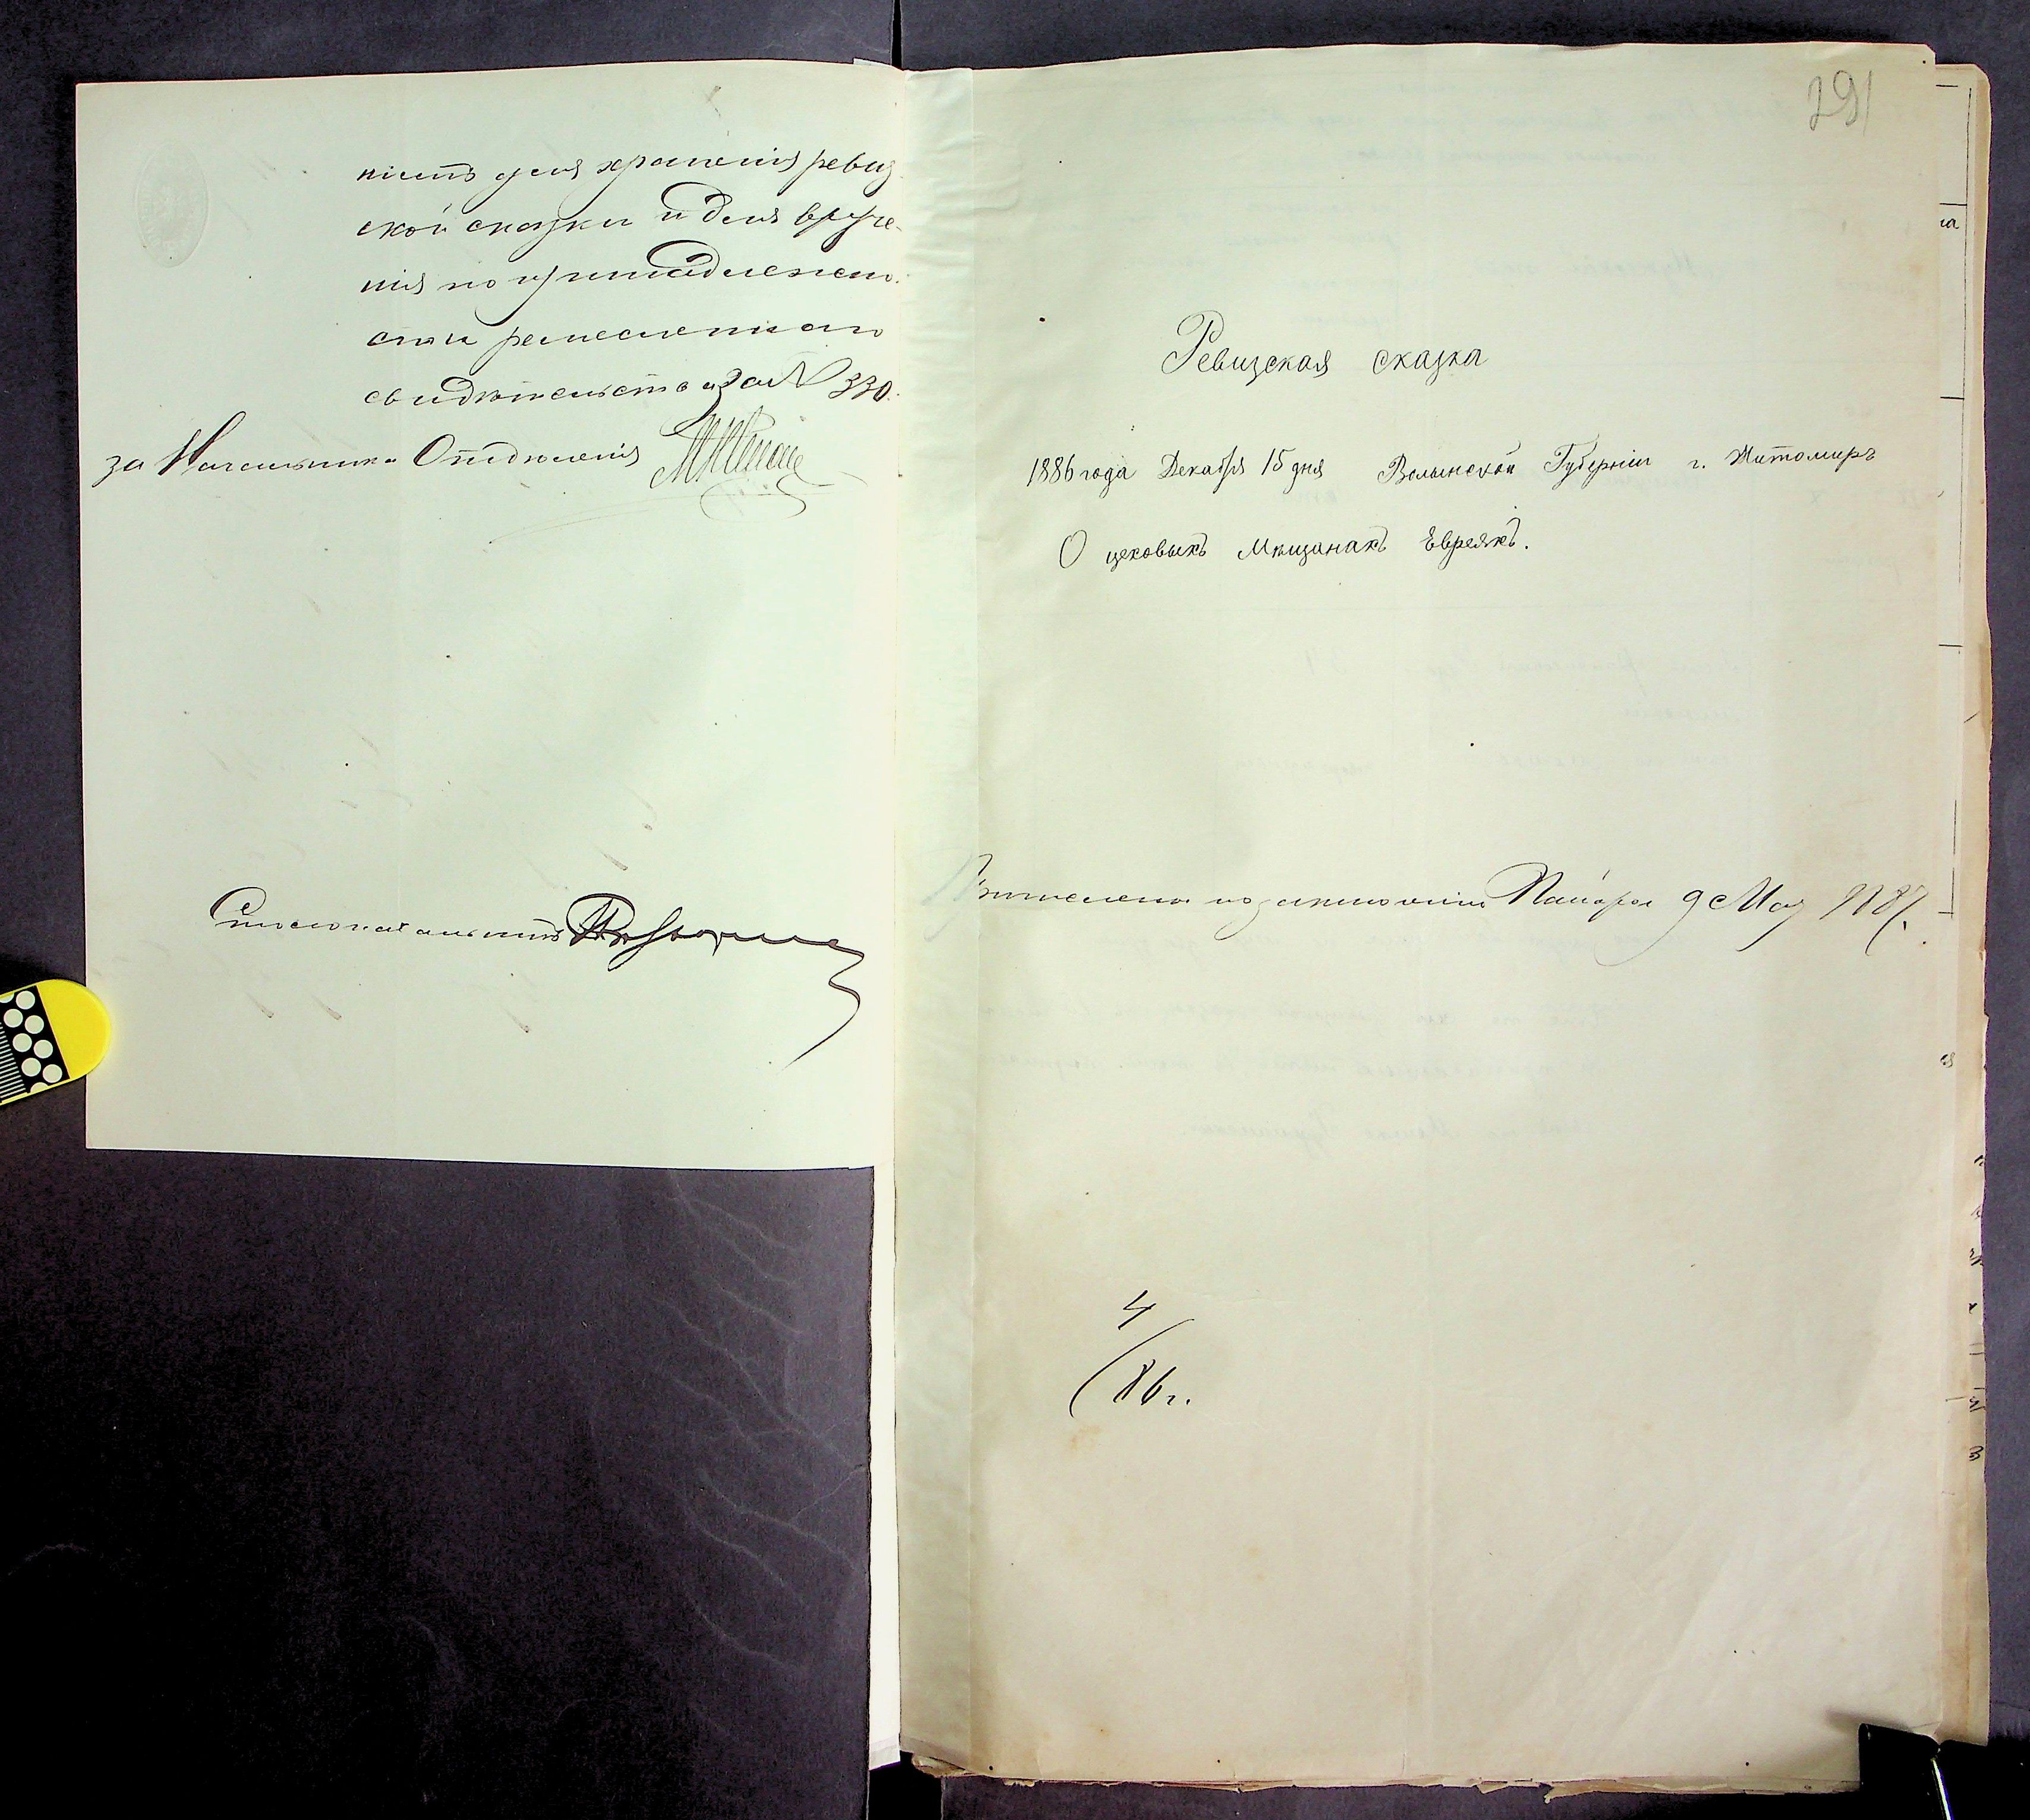 ніемъ для храненія ревиз
ской сказки и для вруче-
нія по принадлежно-
сти ремесленнаго
свидѣтельства за № 330.
за Начальника Отдѣленія
Столоначальникъ
291
Ревизская сказка
1886 года Декабря 15 дня Волынской Губерніи г. Житомиръ
О цеховыхъ Мѣщанахъ Евреяхъ.
по заключенію Палаты 9 Мая 1887.
4/86 г.